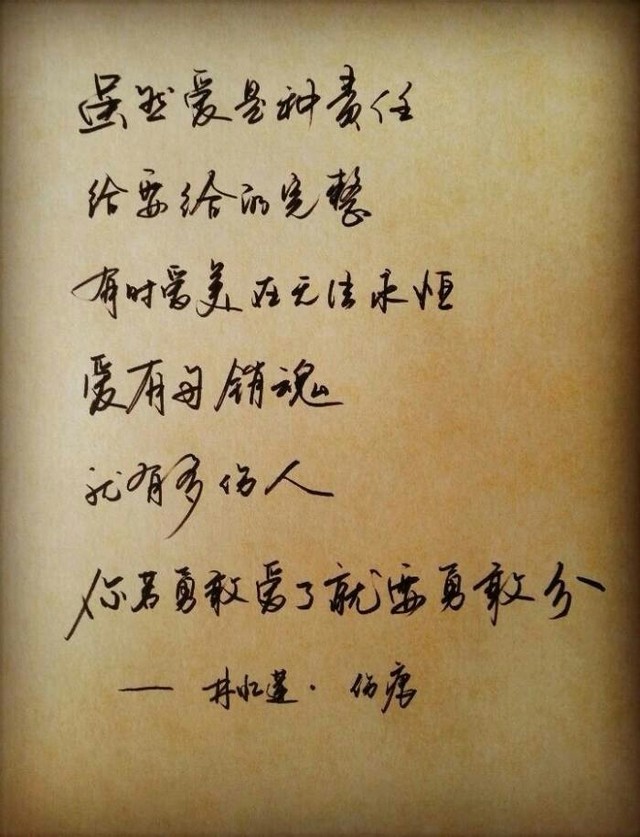 虽然爱是种责任
给要给的完整
有时爱美在无法永恒
爱有多销魂
就有多伤人
你若勇敢爱了就要勇敢分
——林忆莲·伤痕